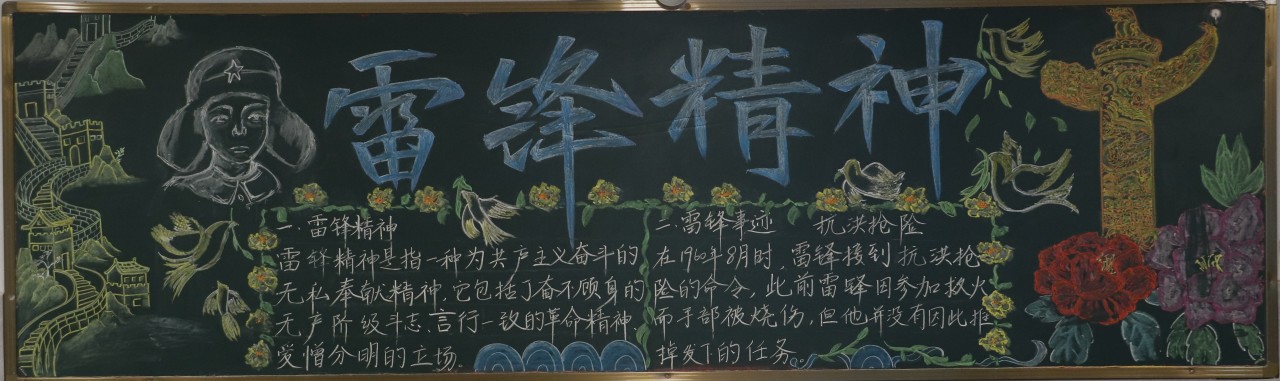 雷锋精神
一.雷锋精神
雷锋精神是指一种为共产主义奋斗的
无私奉献精神,它包括了奋不顾身的
无产阶级斗志、言行一致的革命精神
爱憎分明的立场。
二.雷锋事迹 抗洪抢险
在1960年8月时,雷锋接到抗洪抢
险的命令,此前雷锋因参加救火
而手部被烧伤,但他并没有因此推
掉发下的任务。